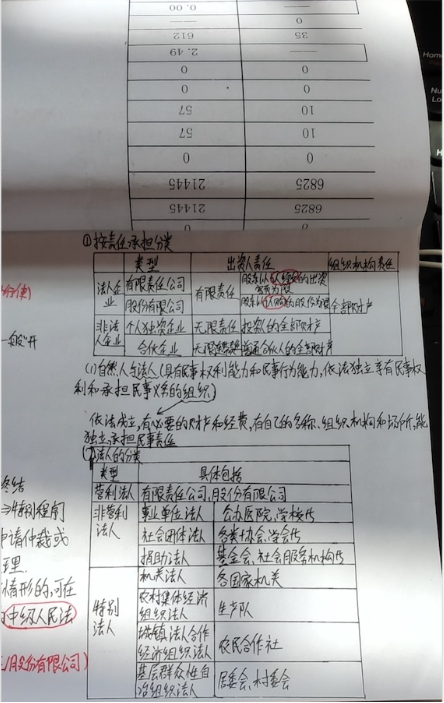 0.00
—
612
35
2.49
—
0
0
0
0
57
10
57
10
0
0
21445
6825
21445
6825
①按责任承担分类
类型 出资人责任 组织机构责任
法人企业 有限责任公司 有限责任 股东以认缴的出资额为限 全部财产
股份有限公司 股东以认购的股份为限
非法人企业 个人独资企业 无限责任 投资人的全部财产
合伙企业 普通合伙人的全部财产
(1)自然人与法人(具有民事权利能力和民事行为能力,依法独立享有民事权
利和承担民事义务的组织)
依法成立,有必要的财产和经费,有自己的名称、组织机构和场所,能
独立承担民事责任
法人的分类
类型 具体包括
营利法人 有限责任公司,股份有限公司
非营利法人 事业单位法人 公办医院,学校等
社会团体法人 各类协会,学会等
捐助法人 基金会,社会服务机构等
特别法人 机关法人 各国家机关
农村集体经济组织法人 生产队
城镇农村合作经济组织法人 农民合作社
基层群众性自治组织法人 居委会,村委会
终结
特别程序
申请仲裁或
情形的,可在
中级人民法
股份有限公司)